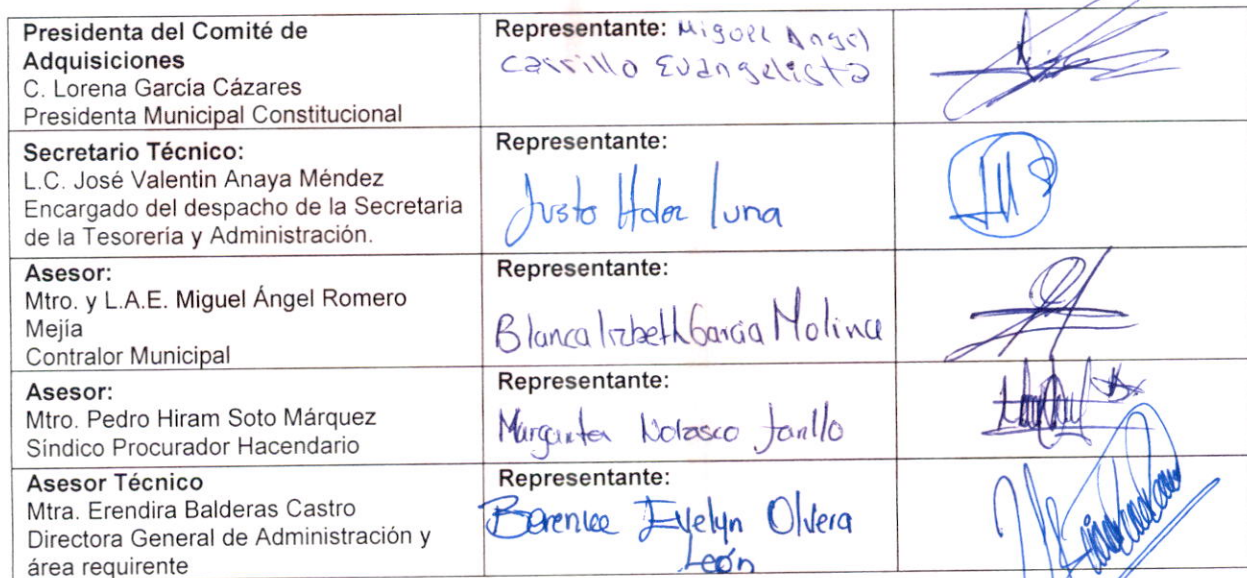 Presidenta del Comité de
Adquisiciones
C. Lorena García Cázares
Presidenta Municipal Constitucional
Representante: Miguel Angel
Carrillo Evangelista
Secretario Técnico:
L.C. José Valentin Anaya Méndez
Encargado del despacho de la Secretaria
de la Tesorería y Administración.
Representante:
Justo Hdez luna
Asesor:
Mtro. y L.A.E. Miguel Ángel Romero
Mejía
Contralor Municipal
Representante:
Blanca lizbeth Garcia Molina
Asesor:
Mtro. Pedro Hiram Soto Márquez
Síndico Procurador Hacendario
Representante:
Margarita Nolasco
Asesor Técnico
Mtra. Erendira Balderas Castro
Directora General de Administración y
área requirente
Representante:
Berenice Evelyn Olvera
León